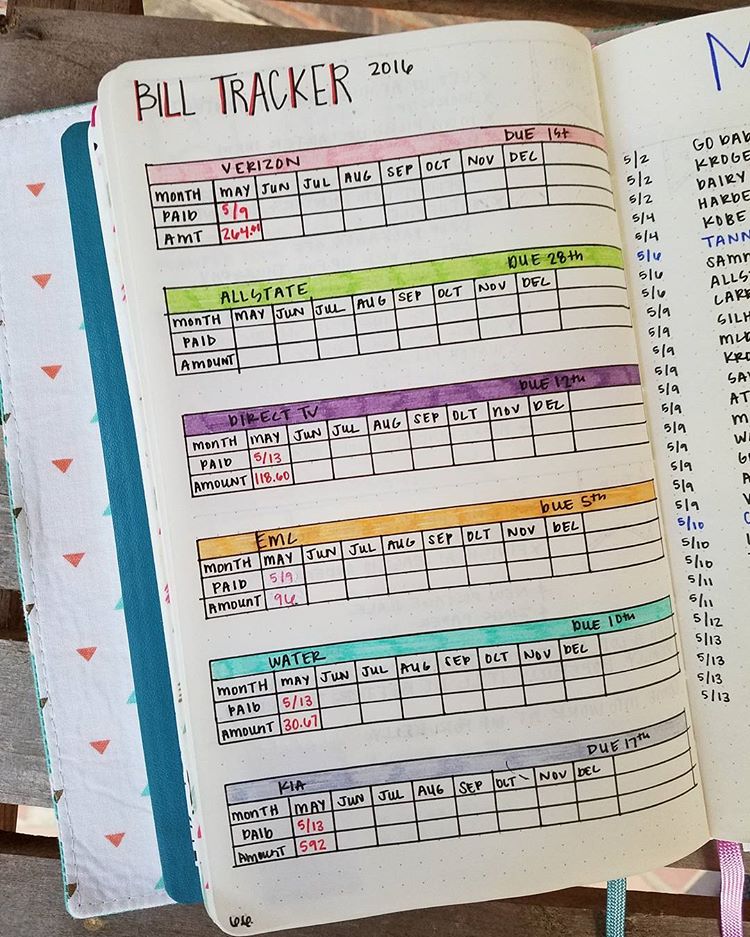 BILL TRACKER 2016
VERIZON DUE 1st
MONTH MAY JUN JUL AUG SEP OCT NOV DEC
PAID 5/9
AMT
ALLSTATE DUE 28th
MONTH MAY JUN JUL AUG SEP OCT NOV DEC
PAID
AMOUNT
DIRECT TV DUE 12th
MONTH MAY JUN JUL AUG SEP OCT NOV DEC
PAID 5/13
AMOUNT 118.60
EMC DUE 5th
MONTH MAY JUN JUL AUG SEP OCT NOV DEC
PAID 5/9
AMOUNT 96
WATER DUE 10th
MONTH MAY JUN JUL AUG SEP OCT NOV DEC
PAID 5/13
AMOUNT 30.67
KIA DUE 17th
MONTH MAY JUN JUL AUG SEP OCT NOV DEC
PAID 5/13
AMOUNT 592
66
M
5/2 GO DAD
5/2 KROGE
5/2 DAIRY
5/4 HARDE
5/4 KOBE
5/6 TANN
5/6 SAMM
5/6 ALLS
5/9 CARE
5/9 SILH
5/9
5/9 KRO
5/9
5/9
5/9
5/9
5/9
5/9
5/9
5/10
5/10
5/10
5/11
5/11
5/12
5/13
5/13
5/13
5/13